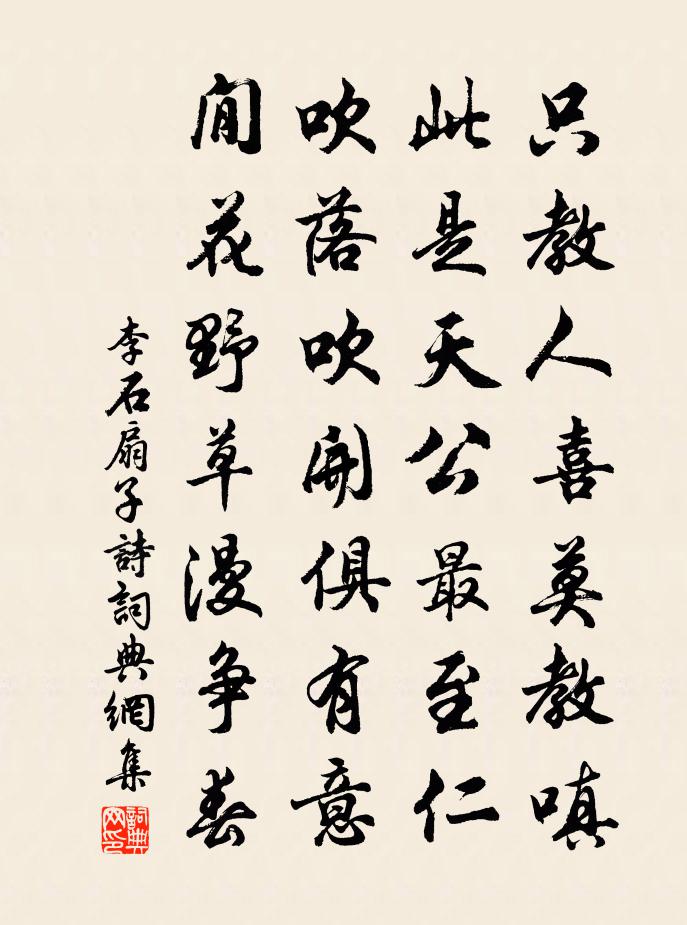 只教人喜莫教嗔
此是天公最至仁
吹落吹開俱有意
閒花野草漫争春
李石扇子詩詞典網集
詞典网印